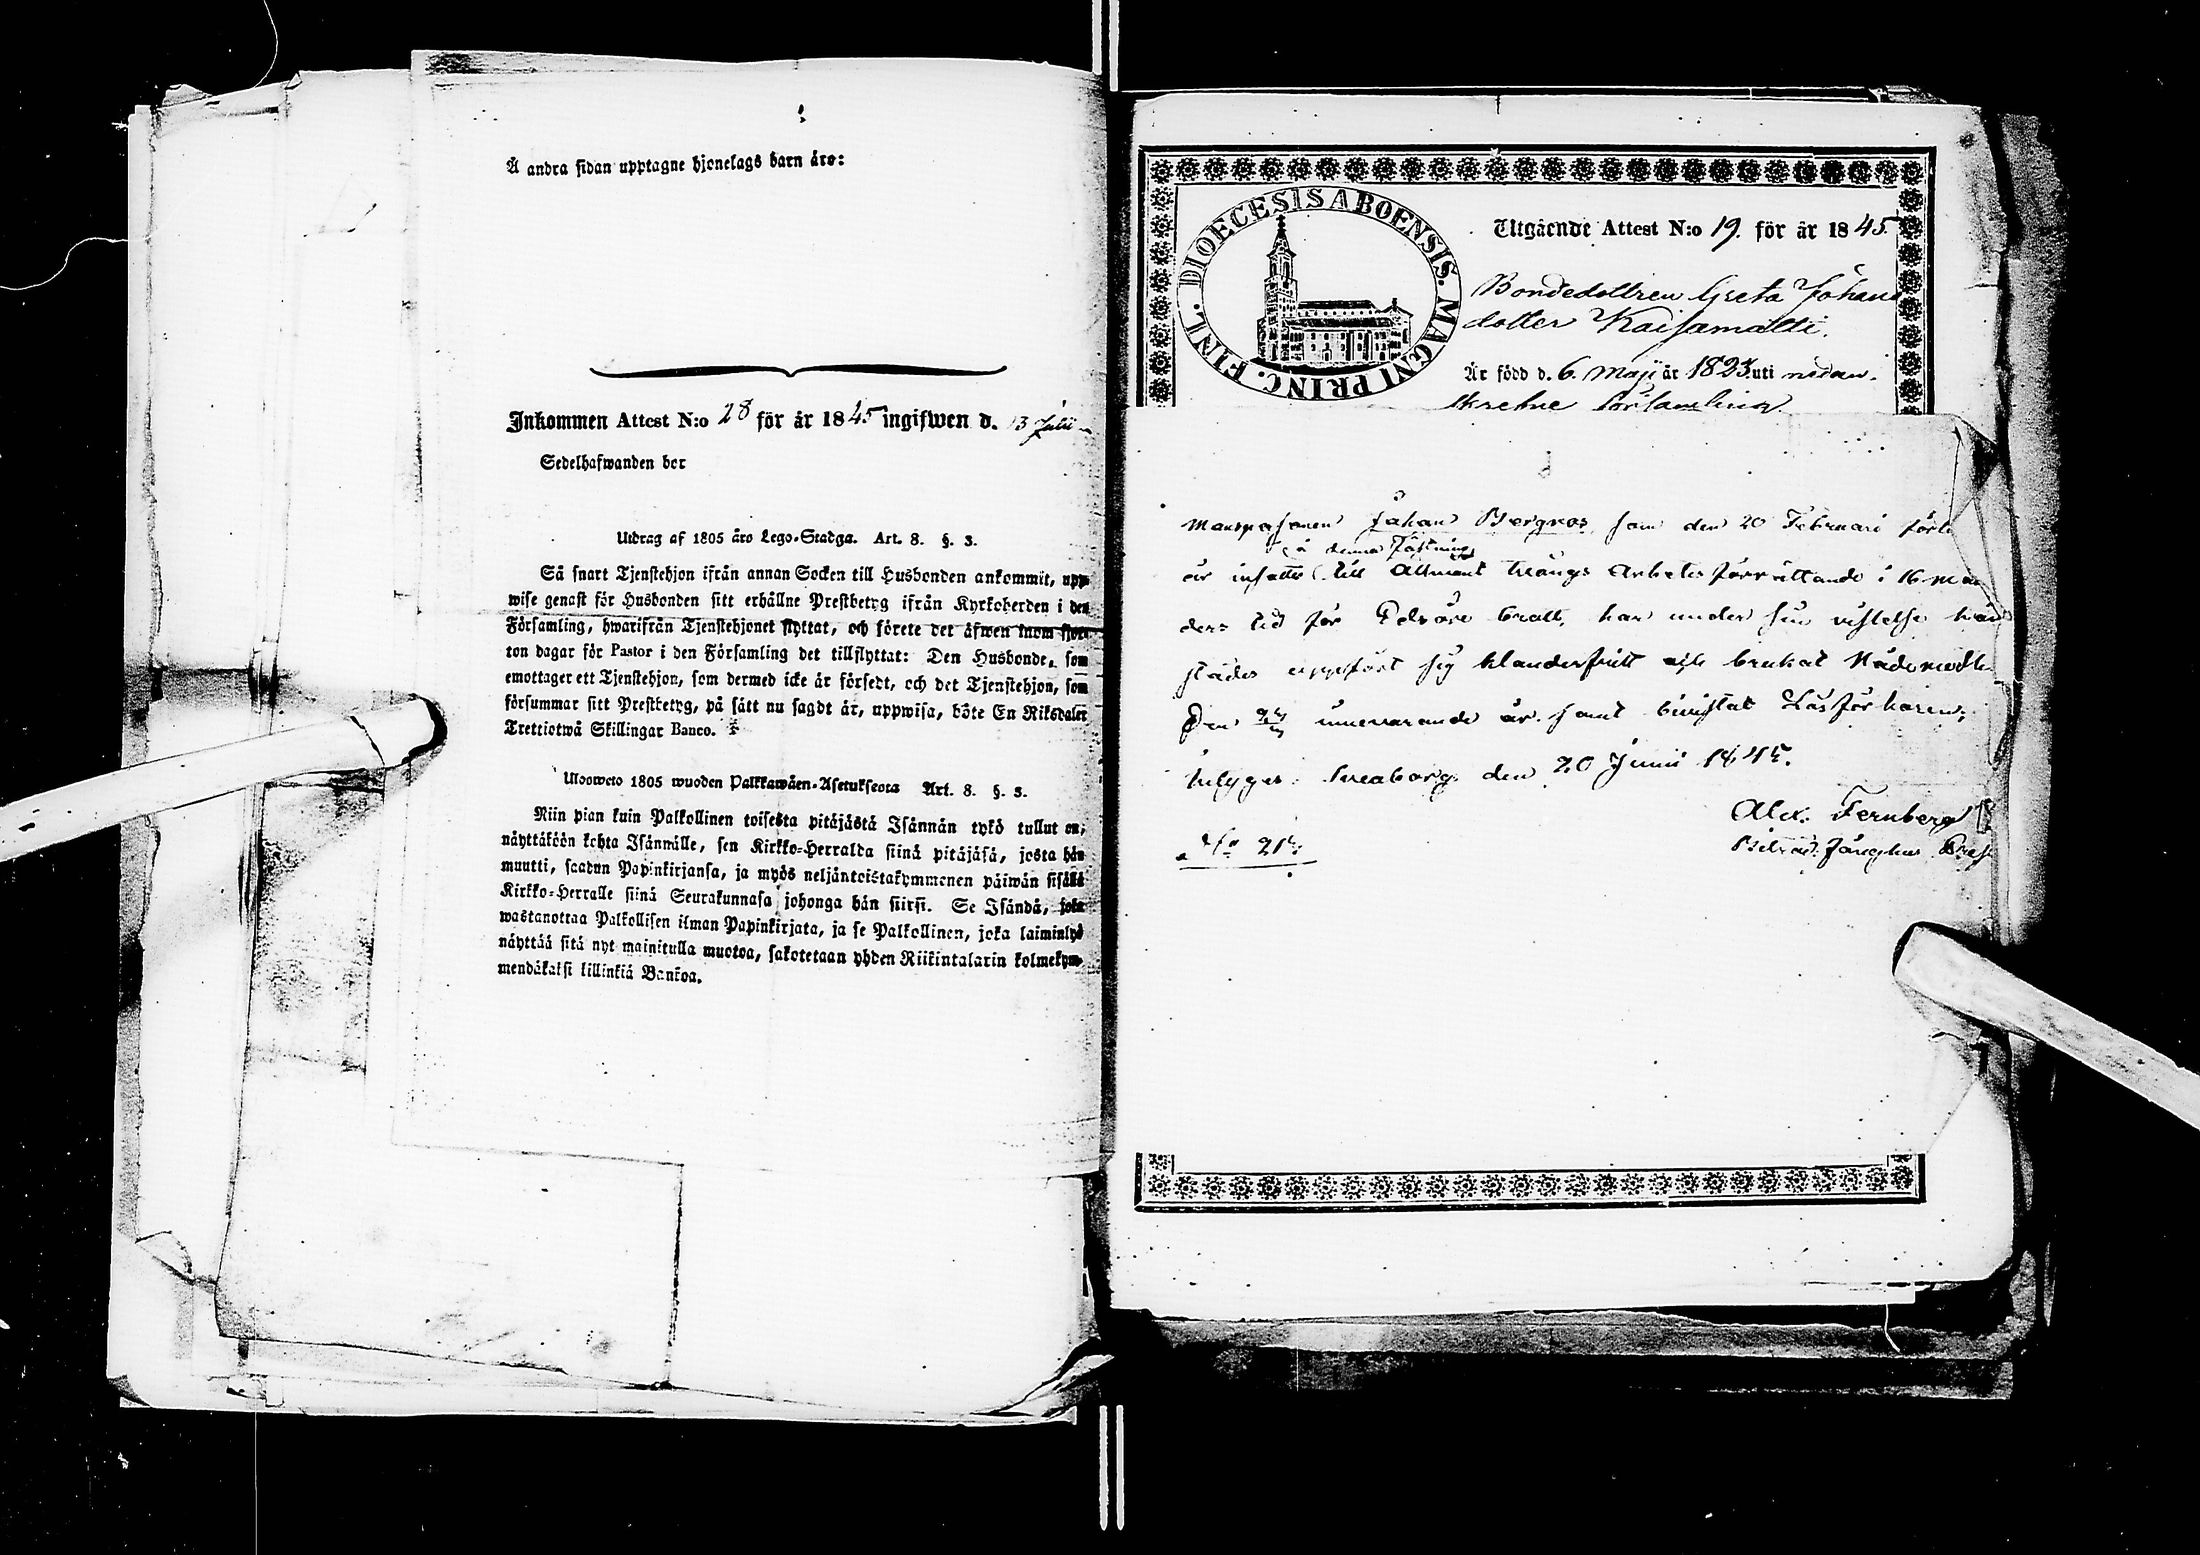 Å andra sidan upptagne hjonelags barn äro:
Inkommen Attest N:o 28 för år 1845 ingifwen d. 13 Julii
Sedelhafwanden bor
Utdrag af 1805 års Lego-Stadga. Art. 8. §. 3.
Så snart Tjenstehjon ifrån annan Socken till Husbonden ankommit, upp-
wise genast för Husbonden sitt erhållne Prestbetyg ifrån Kyrkoherden i den
Församling, hwarifrån Tjenstehjonet flyttat, och förete det äfwen inom fjor-
ton dagar för Pastor i den Församling det tillflyttat: Den Husbonde, som
emottager ett Tjenstehjon, som dermed icke är försedt, och det Tjenstehjon, som
försummar sitt Prestbetyg, på sätt nu sagdt är, uppwisa, böte En Riksdaler
Trettiotwå Skillingar Banco.
Uloosweto 1805 wuoden Palkkawäen-Asetuksesta Art. 8. §. 3.
Niin pian kuin Palkollinen toisesta pitäjästä Isännän tykö tullut on,
näyttäköön kohta Isännälle, sen Kirkko-Herralda siinä pitäjäsä, josta hän
muutti, saadun Papinkirjansa, ja myös neljäntoistakymmenen päiwän sisällä
Kirkko-Herralle siinä Seurakunnasa johonga hän siirsi. Se Isändä, joka
wastanottaa Palkollisen ilman Papinkirjata, ja se Palkollinen, joka laiminlyö
näyttää sitä nyt mainitulla muotoa, sakotetaan yhden Riikintalarin kolmekym-
mendäkaksi killinkiä Bankoa.
DIOECESIS ABOENSIS. MAGNI PRINC. FINL.
Utgående Attest N:o 19. för år 1845.
Bondedottren Greta Johans
dotter Kaisamatti.
Är född d. 6. Maji år 1823. uti nedan-
skrefne församling.
Manspersonen Johan Bergroos, som den 20 Februari förl.
å denna Fästning
är insatt till Allmänt twångs Arbetes förrättande i 16 måna
ders tid för brott, har under sin vistelse här
städes uppfört sig klanderfritt och brukat Nådemedlen
Den innevarande år samt bivistat Läsförhören;
betygar. Sveaborg den 20 Junii 1845.
Alex. Fernberg
No 214.